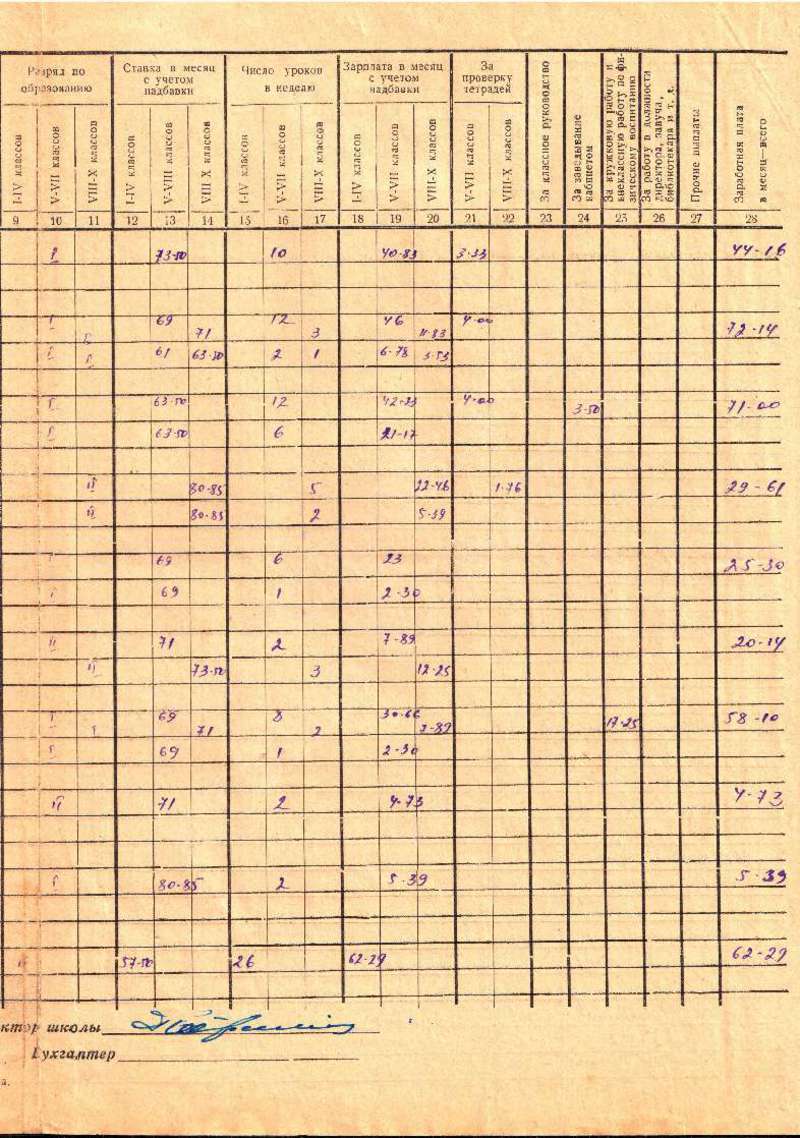 Разряд по образованию Ставка в месяц с учетом надбавки Число уроков в неделю Зарплата в месяц с учетом надбавки За проверку тетрадей За классное руководство За заведывание кабинетом За кружковую работу и внеклассную работу по физическому воспитанию За работу в должности директора, завуча, библиотекаря и т. д. Прочие выплаты Заработная плата в месяц—всего
I-IV классов V-VII классов VIII-X классов I-IV классов V-VIII классов VIII X классов I-IV классов V-VII классов VIII-X классов I-IV классов V-VII классов VIII-X классов V-VII классов VIII-X классов
9 10 11 12 13 14 15 16 17 18 19 20 21 22 23 24 25 26 27 28
I 73-50 10 40-83 3-33 44-16
I 69 12 46 4-00
I 71 3 11-83 72-14
I I 61 63-50 2 1 6-78 3-53
I 63-50 12 42-33 4-00 3-50 71-00
I 63-50 6 21-17
II 80-85 5 22-46 1-76 29-61
II 80-85 2 5-39
I 69 6 23 25-30
I 69 1 2-30
II 71 2 7-89 20-14
II 73-50 3 12-25
I 69 8 30-66 17-25 58-10
I 71 2 7-89
I 69 1 2-30
II 71 2 4-73 4-73
I 80-85 2 5-39 5-39
57-50 26 62-29 62-29
ктор школы
Бухгалтер
а.